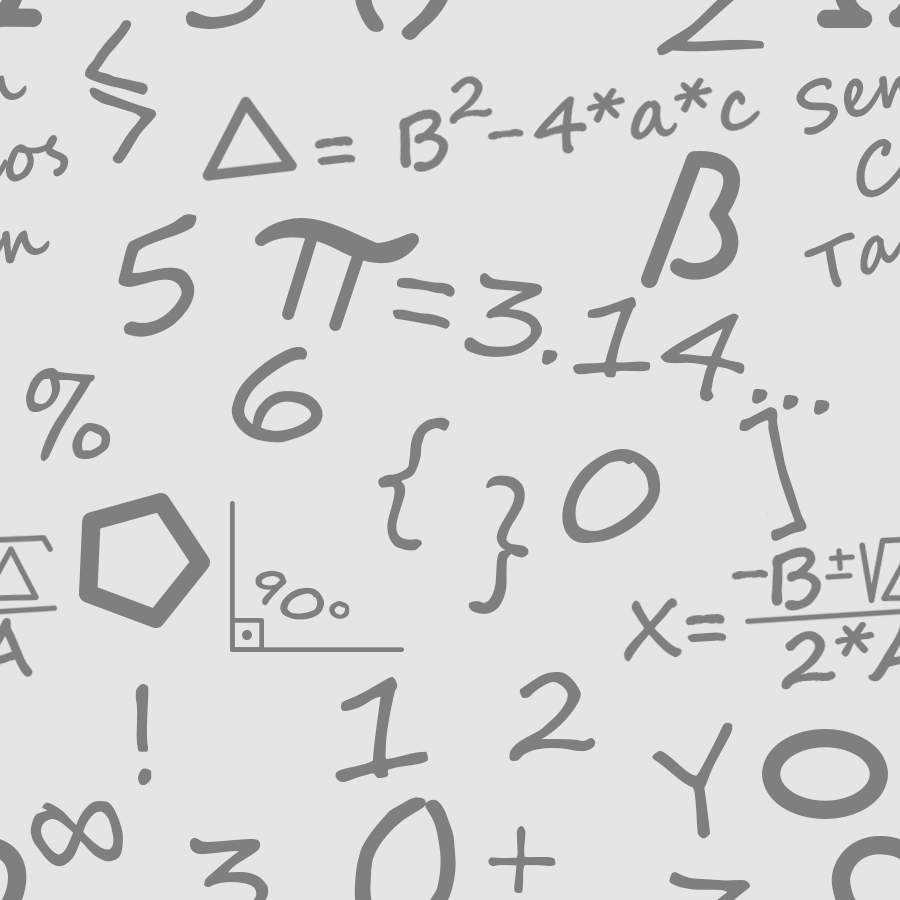 < >
Δ = B²-4*a*c
Sen
Cos
Tan
β
5
π=3.14...
%
6
{ } 0 ]
90°
X= -B±√Δ
2*A
!
1 2
Y
∞
3 0 +